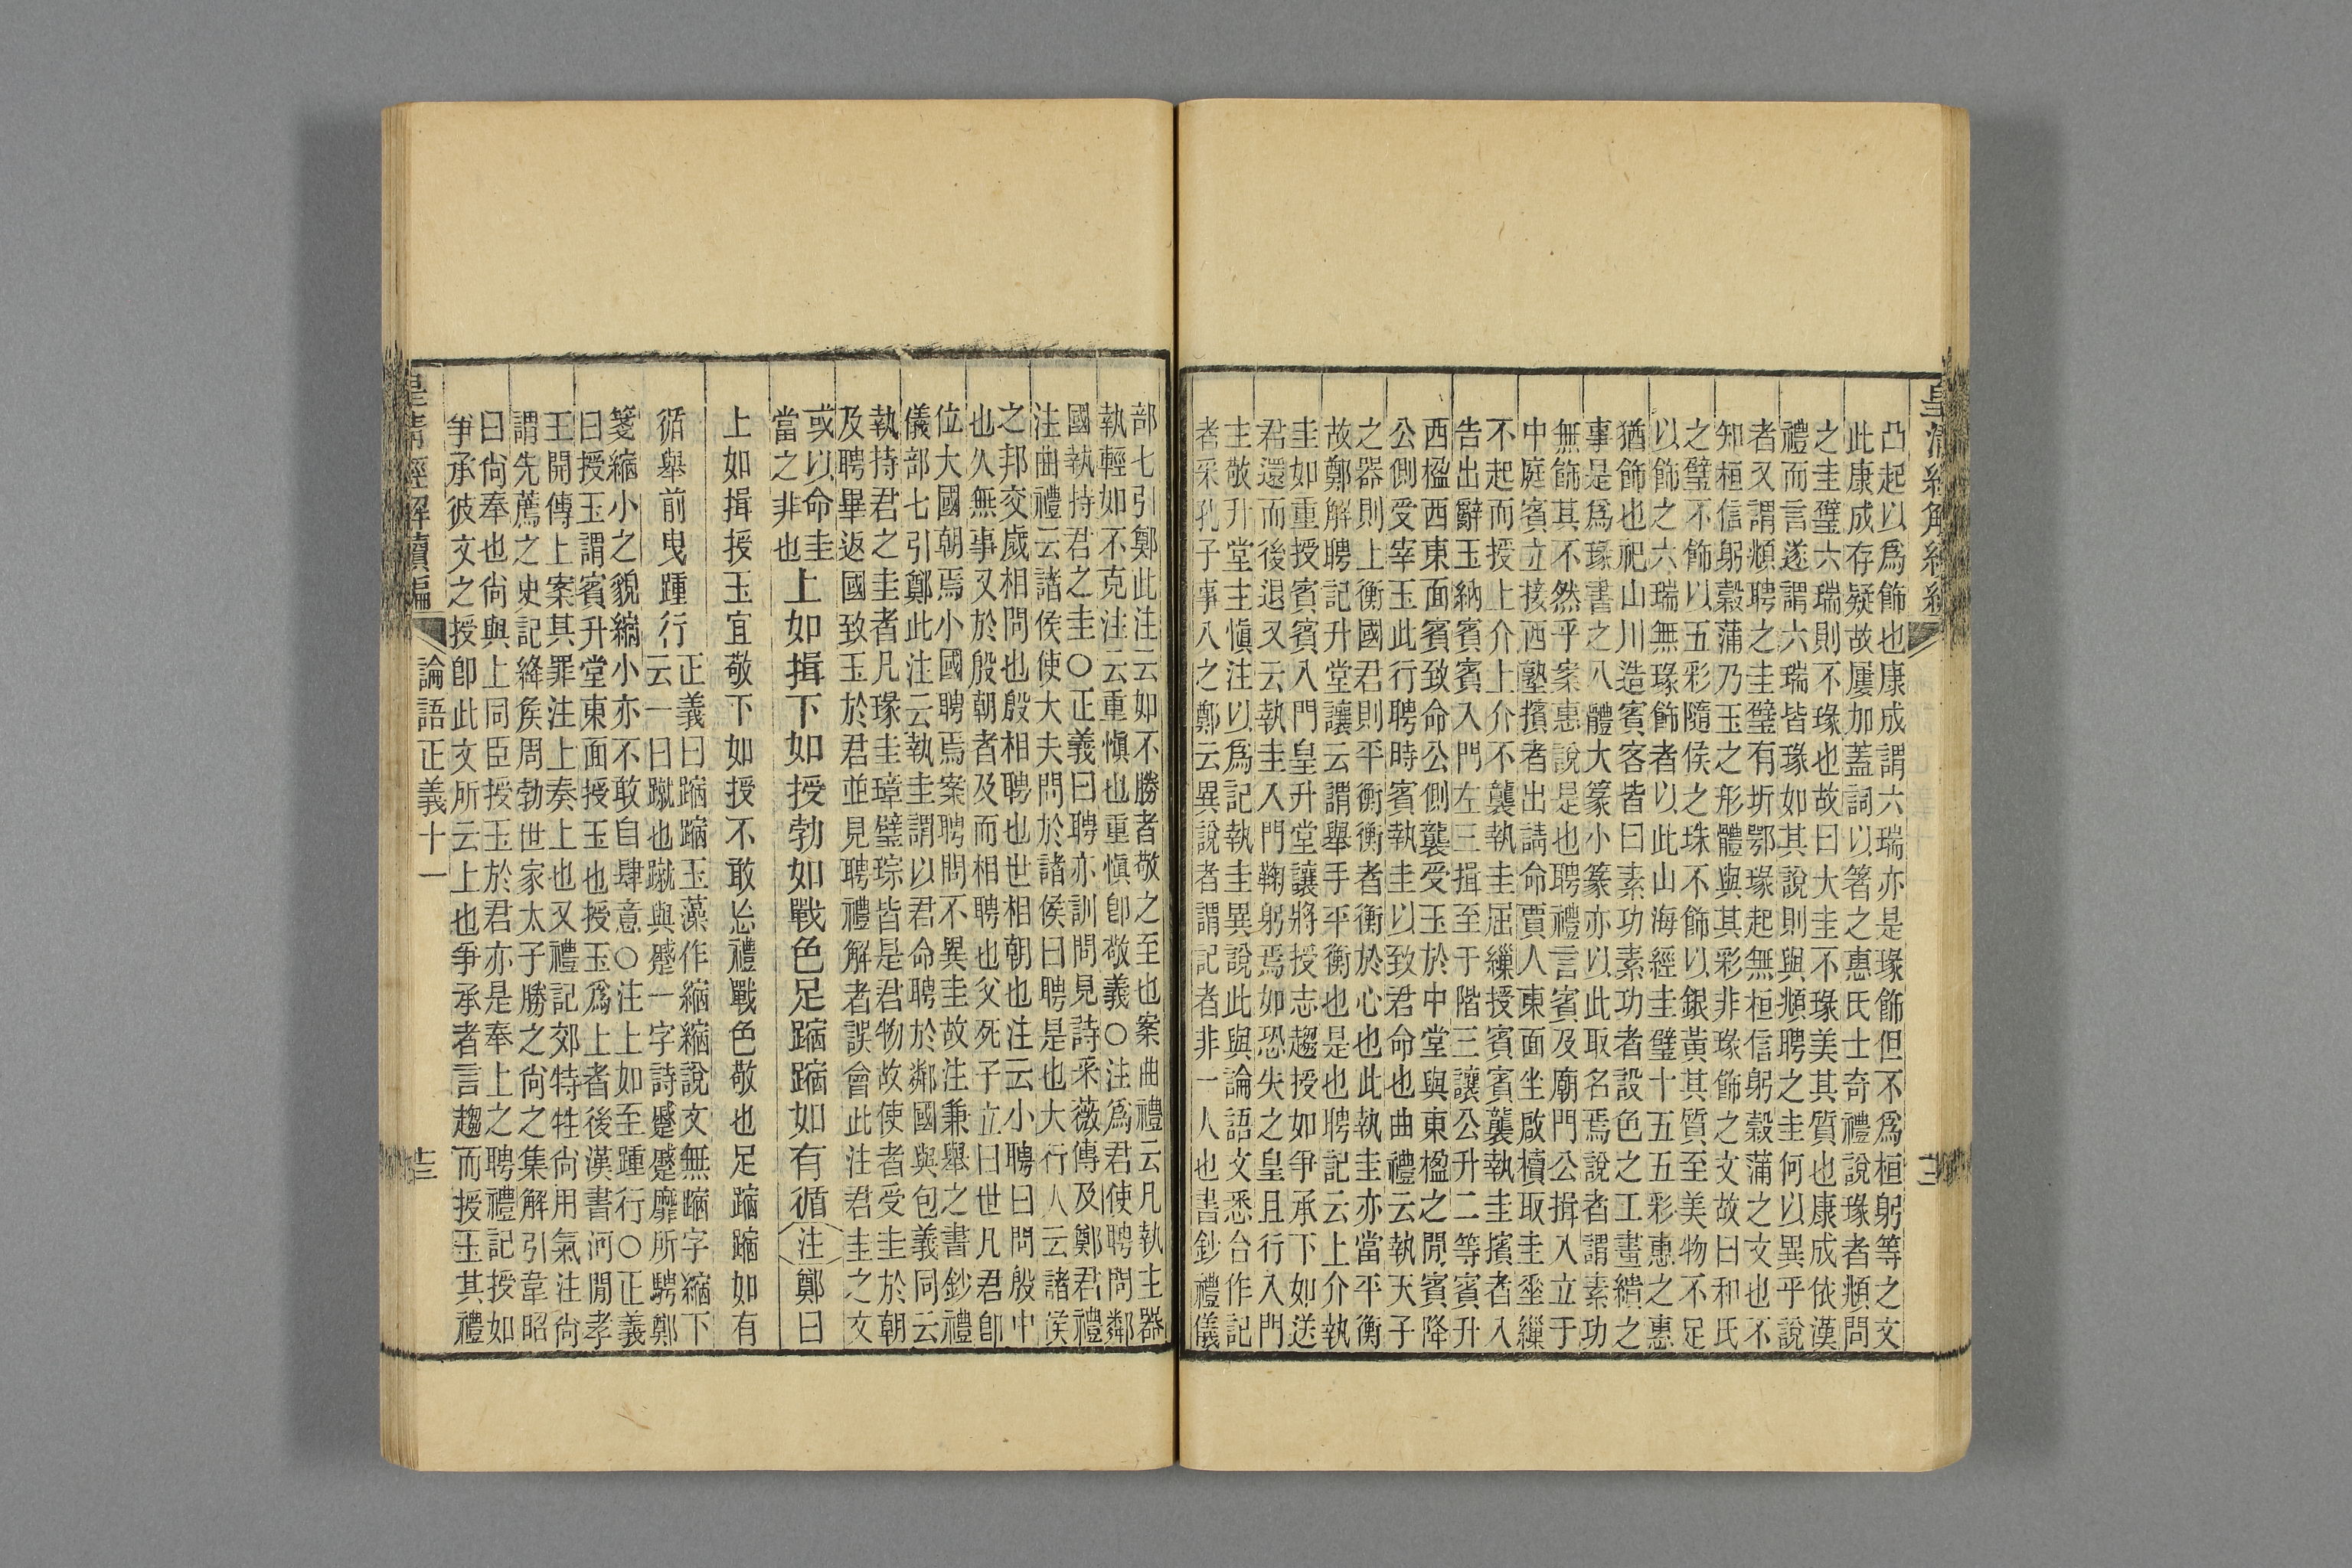 皇清經解續編
凸起以爲飾也康成謂六瑞亦是瑑飾但不爲桓躬等之文
此康成存疑故屢加蓋詞以箸之惠氏士奇禮說瑑者頫問
之圭璧六瑞則不瑑也故曰大圭不瑑美其質也康成依漢
禮而言遂謂六瑞皆瑑如其說則與頫聘之圭何以異乎說
者又謂頫聘之圭璧有圻鄂瑑起無桓信躬穀蒲之文也不
知桓信躬穀蒲乃玉之形體與其彩非瑑飾之文故曰和氏
之璧不飾以五彩隨侯之珠不飾以銀黃其質至美物不足
以飾之六瑞無瑑飾者以此山海經圭璧十五五彩惠之惠
猶飾也祀山川造賓客皆曰素功素功者設色之工畫繢之
事是爲瑑書之八體大篆小篆亦以此取名焉說者謂素功
無飾其不然乎案惠說是也聘禮言賓及廟門公揖入立于
中庭賓立接西塾擯者出請命賈人東面坐啟櫝取圭垂繅
不起而授上介上介不襲執圭屈繅授賓賓襲執圭擯者入
告出辭玉納賓賓入門左三揖至于階三讓公升二等賓升
西楹西東面賓致命公側襲受玉於中堂與東楹之閒賓降
公側受宰玉此行聘時賓執圭以致君命也曲禮云執天子
之器則上衡國君則平衡衡者衡於心也此執圭亦當平衡
故鄭解聘記升堂讓云謂舉手平衡也是也聘記云上介執
圭如重授賓賓入門皇升堂讓將授志趨授如爭承下如送
君還而後退又云執圭入門鞠躬焉如恐失之皇且行入門
主敬升堂主愼注以爲記執圭異說此與論語文悉合作記
者采孔子事八之鄭云異說者謂記者非一人也書鈔禮儀
部七引鄭此注云如不勝者敬之至也案曲禮云凡執主器
執輕如不克注云重愼也重愼卽敬義○注爲君使聘問鄰
國執持君之圭○正義曰聘亦訓問見詩采薇傳及鄭君禮
注曲禮云諸侯使大夫問於諸侯曰聘是也大行人云諸侯
之邦交歲相問也殷相聘也世相朝也注云小聘曰問殷中
也久無事又於殷朝者及而相聘也父死子立曰世凡君卽
位大國朝焉小國聘焉案聘問不異圭故注兼舉之書鈔禮
儀部七引鄭此注云執圭謂以君命聘於鄰國與包義同云
執持君之圭者凡瑑圭璋璧琮皆是君物故使者受圭於朝
及聘畢返國致玉於君並見聘禮解者誤會此注君圭之文
或以命圭
當之非也
上如揖下如授勃如戰色足蹜蹜如有循注鄭曰
上如揖授玉宜敬下如授不敢忘禮戰色敬也足蹜蹜如有
循舉前曳踵行
正義曰蹜蹜玉藻作縮縮說文無蹜字縮下
云一曰蹴也蹴與蹙一字詩蹙蹙靡所騁鄭
箋縮小之貌縮小亦不敢自肆意○注上如至踵行○正義
曰授玉謂賓升堂東面授玉也授玉爲上者後漢書河閒孝
王開傳上案其罪注上奏上也又禮記郊特牲尙用氣注尙
謂先薦之史記絳侯周勃世家太子勝之尙之集解引韋昭
曰尙奉也尙與上同臣授玉於君亦是奉上之聘禮記授如
爭承彼文之授卽此文所云上也爭承者言趨而授玉其禮
皇清經解續編
論語正義十一
十三